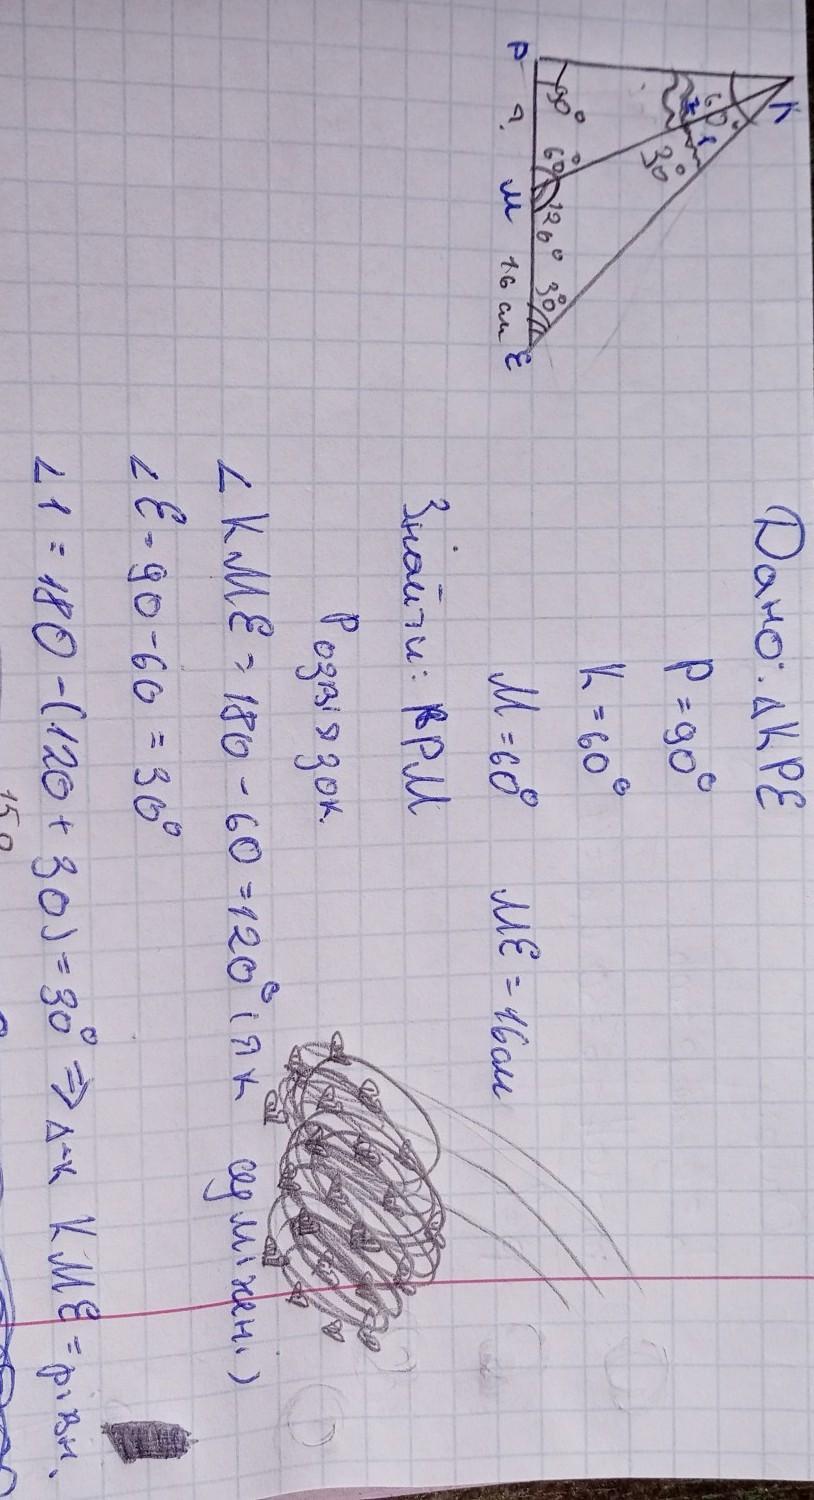 Дано: ΔKPE
P = 90°
K = 60°
M = 60° ME = 16 см
Знайти: PM
Розв'язок.
∠KME = 180 - 60 = 120° (як суміжні)
∠E = 90 - 60 = 30°
∠1 = 180 - (120 + 30) = 30° ⇒ Δ-к KME = рівн.
K
60°
1
30°
P
90°
?
60°
M
120°
16 см
30
E